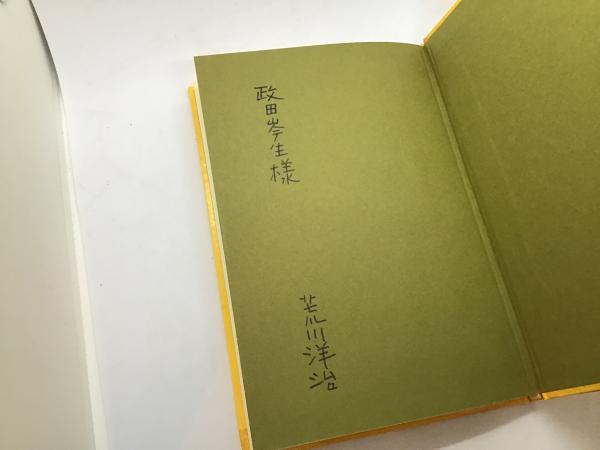 政田岑生様
荒川洋治